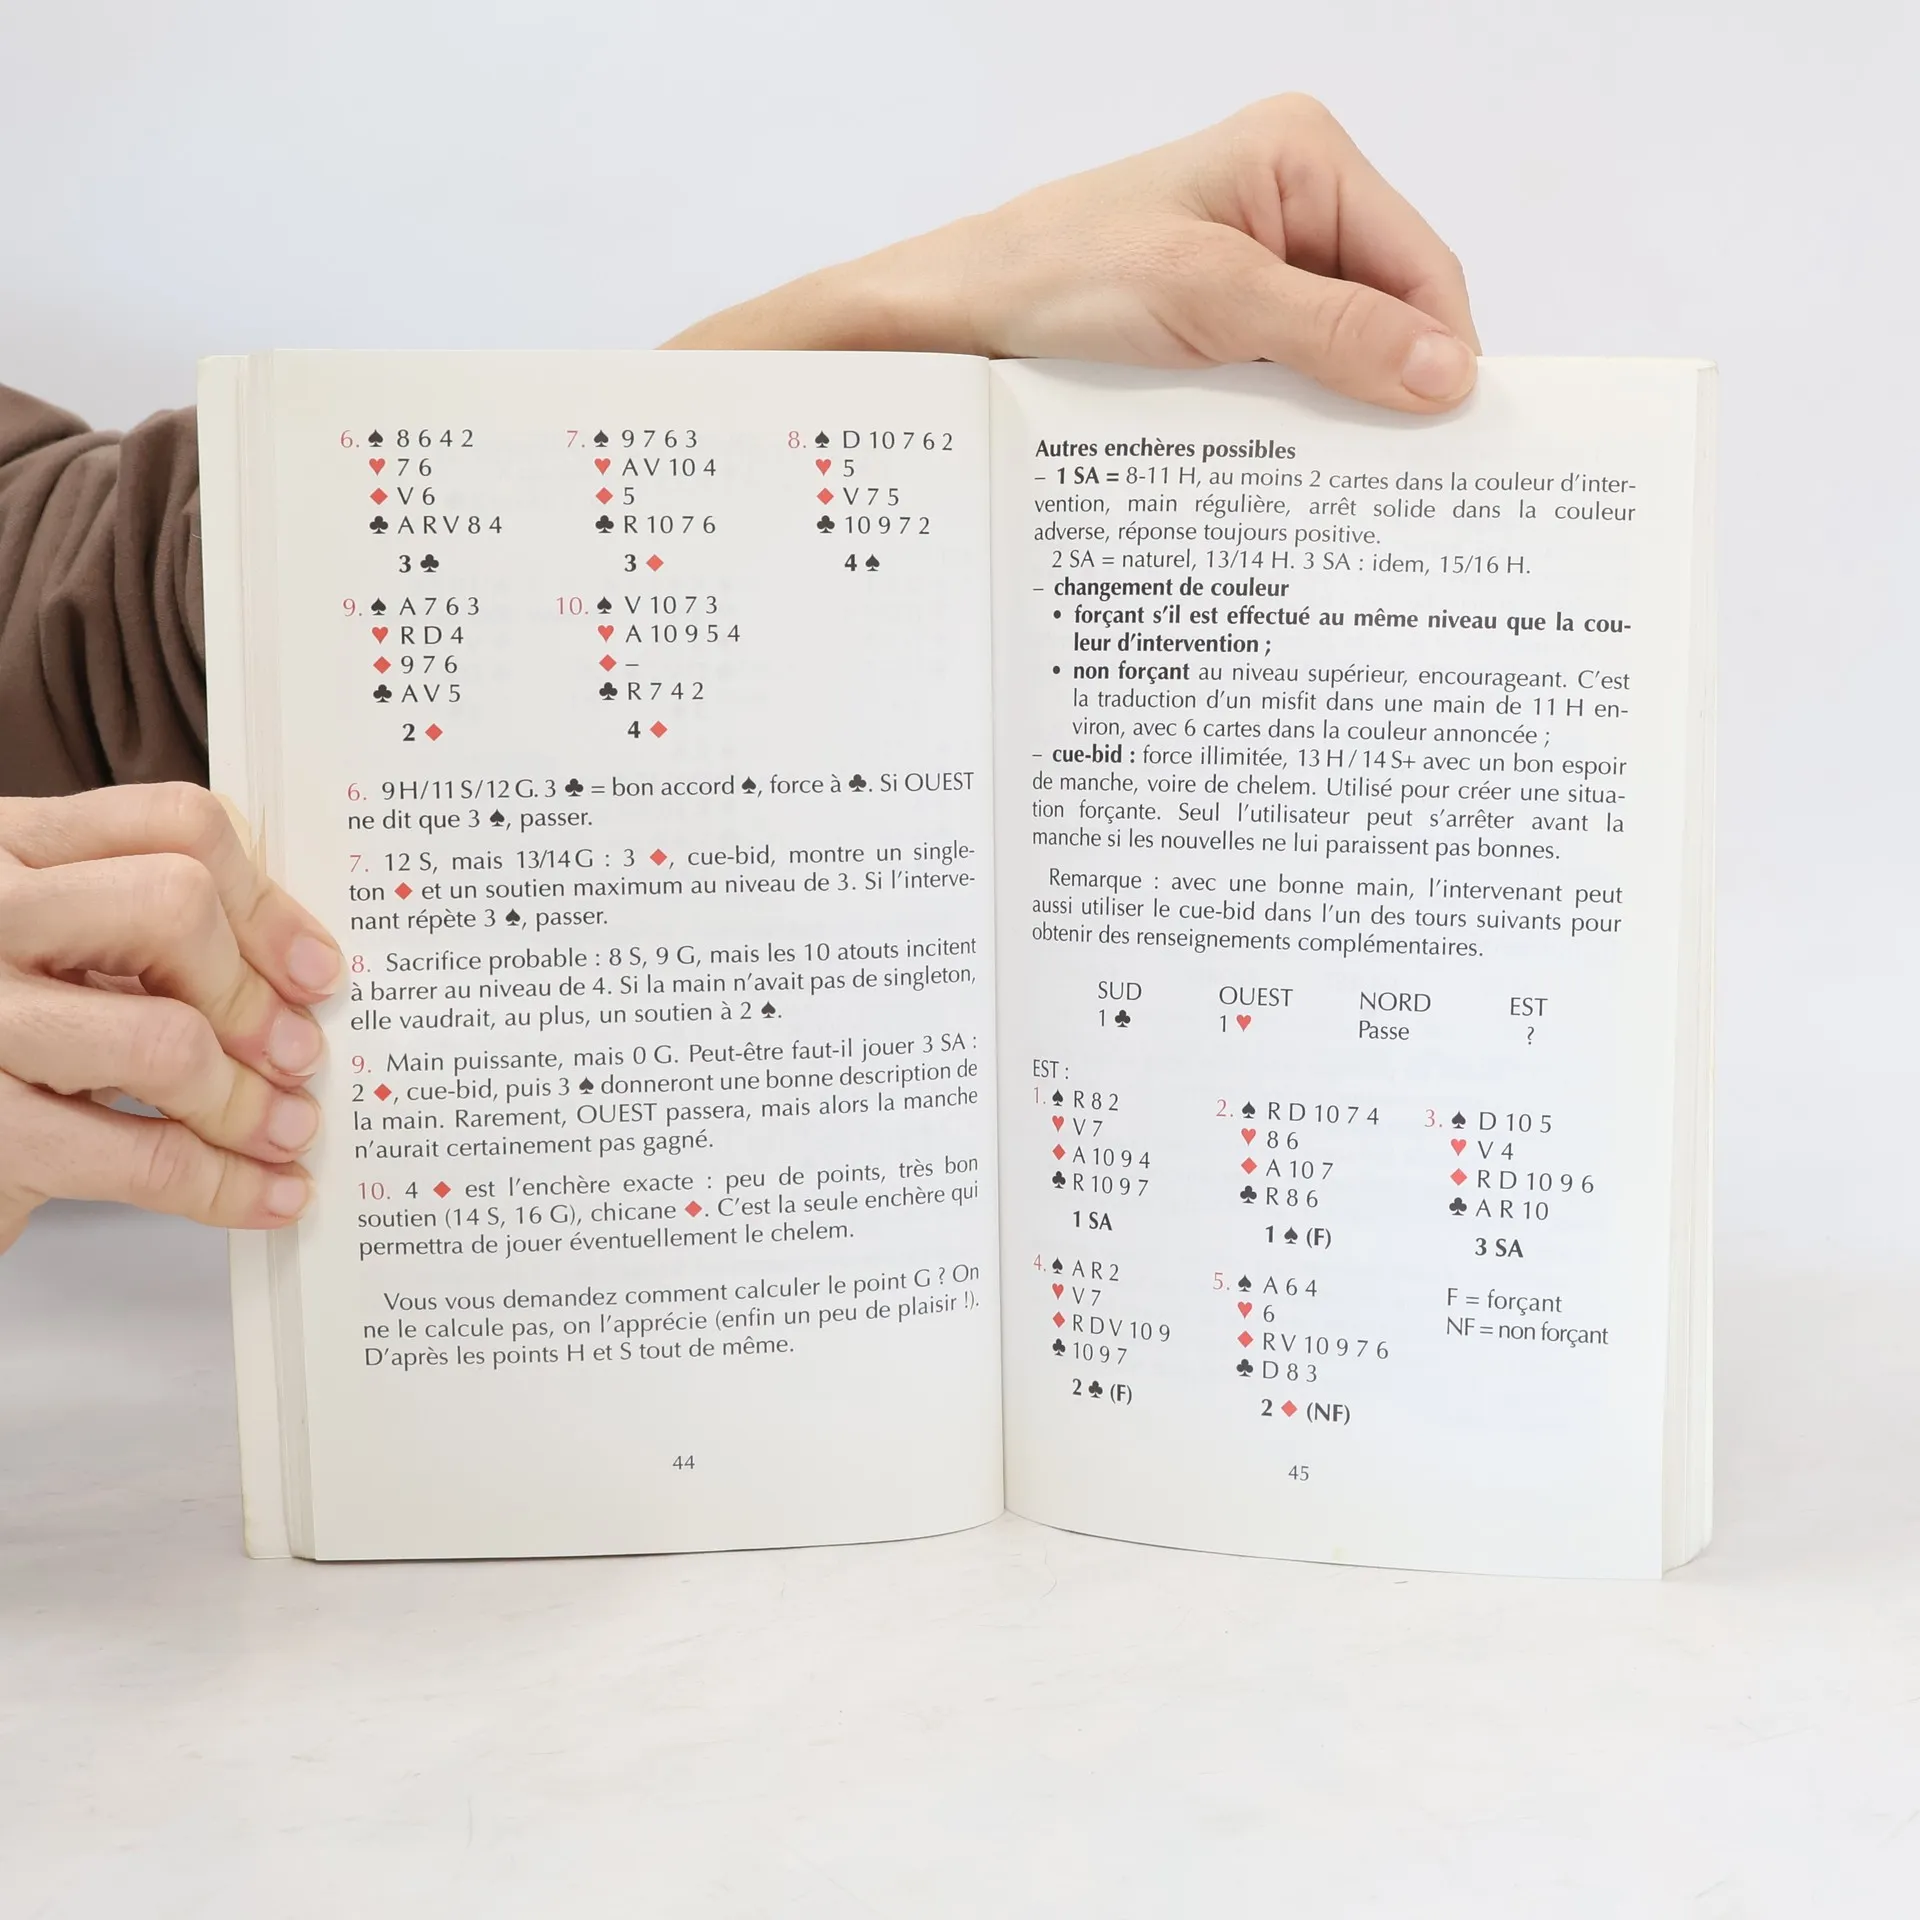 6. ♠ 8 6 4 2
♥ 7 6
♦ V 6
♣ A R V 8 4
3 ♣
7. ♠ 9 7 6 3
♥ A V 10 4
♦ 5
♣ R 10 7 6
3 ♦
8. ♠ D 10 7 6 2
♥ 5
♦ V 7 5
♣ 10 9 7 2
4 ♠
9. ♠ A 7 6 3
♥ R D 4
♦ 9 7 6
♣ A V 5
2 ♦
10. ♠ V 10 7 3
♥ A 10 9 5 4
♦ –
♣ R 7 4 2
4 ♦
6. 9 H/11 S/12 G. 3 ♣ = bon accord ♠, force à ♣. Si OUEST
ne dit que 3 ♠, passer.
7. 12 S, mais 13/14 G : 3 ♦, cue-bid, montre un single-
ton ♦ et un soutien maximum au niveau de 3. Si l'interve-
nant répète 3 ♠, passer.
8. Sacrifice probable : 8 S, 9 G, mais les 10 atouts incitent
à barrer au niveau de 4. Si la main n'avait pas de singleton,
elle vaudrait, au plus, un soutien à 2 ♠.
9. Main puissante, mais 0 G. Peut-être faut-il jouer 3 SA :
2 ♦, cue-bid, puis 3 ♠ donneront une bonne description de
la main. Rarement, OUEST passera, mais alors la manche
n'aurait certainement pas gagné.
10. 4 ♦ est l'enchère exacte : peu de points, très bon
soutien (14 S, 16 G), chicane ♦. C'est la seule enchère qui
permettra de jouer éventuellement le chelem.
Vous vous demandez comment calculer le point G ? On
ne le calcule pas, on l'apprécie (enfin un peu de plaisir !).
D'après les points H et S tout de même.
44
Autres enchères possibles
– 1 SA = 8-11 H, au moins 2 cartes dans la couleur d'inter-
vention, main régulière, arrêt solide dans la couleur
adverse, réponse toujours positive.
2 SA = naturel, 13/14 H. 3 SA : idem, 15/16 H.
– changement de couleur
• forçant s'il est effectué au même niveau que la cou-
leur d'intervention ;
• non forçant au niveau supérieur, encourageant. C'est
la traduction d'un misfit dans une main de 11 H en-
viron, avec 6 cartes dans la couleur annoncée ;
– cue-bid : force illimitée, 13 H / 14 S+ avec un bon espoir
de manche, voire de chelem. Utilisé pour créer une situa-
tion forçante. Seul l'utilisateur peut s'arrêter avant la
manche si les nouvelles ne lui paraissent pas bonnes.
Remarque : avec une bonne main, l'intervenant peut
aussi utiliser le cue-bid dans l'un des tours suivants pour
obtenir des renseignements complémentaires.
SUD OUEST NORD EST
1 ♣ 1 ♥ Passe ?
EST :
1. ♠ R 8 2
♥ V 7
♦ A 10 9 4
♣ R 10 9 7
1 SA
2. ♠ R D 10 7 4
♥ 8 6
♦ A 10 7
♣ R 8 6
1 ♠ (F)
3. ♠ D 10 5
♥ V 4
♦ R D 10 9 6
♣ A R 10
3 SA
4. ♠ A R 2
♥ V 7
♦ R D V 10 9
♣ 10 9 7
2 ♣ (F)
5. ♠ A 6 4
♥ 6
♦ R V 10 9 7 6
♣ D 8 3
2 ♦ (NF)
F = forçant
NF = non forçant
45